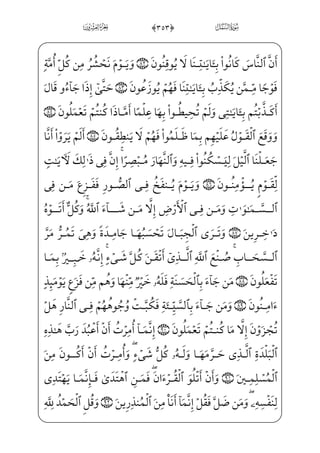 سُورَةُ النَّمْلِ ﴿٣٥٣﴾ الجُزْءُ العِشْرُونَ
أَنَّ ٱلنَّاسَ كَانُوا۟ بِـَٔايَـٰتِنَا لَا يُوقِنُونَ ٨٢ وَيَوْمَ نَحْشُرُ مِن كُلِّ أُمَّةٍ
فَوْجًا مِّمَّن يُكَذِّبُ بِـَٔايَـٰتِنَا فَهُمْ يُوزَعُونَ ٨٣ حَتَّىٰٓ إِذَا جَآءُو قَالَ
أَكَذَّبْتُم بِـَٔايَـٰتِى وَلَمْ تُحِيطُوا۟ بِهَا عِلْمًا أَمَّاذَا كُنتُمْ تَعْمَلُونَ ٨٤
وَوَقَعَ ٱلْقَوْلُ عَلَيْهِم بِمَا ظَلَمُوا۟ فَهُمْ لَا يَنطِقُونَ ٨٥ أَلَمْ يَرَوْا۟ أَنَّا
جَعَلْنَا ٱلَّيْلَ لِيَسْكُنُوا۟ فِيهِ وَٱلنَّهَارَ مُبْصِرًا ۚ إِنَّ فِى ذَٰلِكَ لَـَٔايَـٰتٍ
لِّقَوْمٍ يُؤْمِنُونَ ٨٦ وَيَوْمَ يُنفَخُ فِى ٱلصُّورِ فَفَزِعَ مَن فِى
ٱلسَّمَـٰوَٰتِ وَمَن فِى ٱلْأَرْضِ إِلَّا مَن شَآءَ ٱللَّهُ ۚ وَكُلٌّ أَتَوْهُ
دَٰخِرِينَ ٨٧ وَتَرَى ٱلْجِبَالَ تَحْسَبُهَا جَامِدَةً وَهِىَ تَمُرُّ مَرَّ
ٱلسَّحَابِ ۚ صُنْعَ ٱللَّهِ ٱلَّذِىٓ أَتْقَنَ كُلَّ شَىْءٍ ۚ إِنَّهُۥ خَبِيرٌۢ بِمَا
تَفْعَلُونَ ٨٨ مَن جَآءَ بِٱلْحَسَنَةِ فَلَهُۥ خَيْرٌ مِّنْهَا وَهُم مِّن فَزَعٍ يَوْمَئِذٍ
ءَامِنُونَ ٨٩ وَمَن جَآءَ بِٱلسَّيِّئَةِ فَكُبَّتْ وُجُوهُهُمْ فِى ٱلنَّارِ هَلْ
تُجْزَوْنَ إِلَّا مَا كُنتُمْ تَعْمَلُونَ ٩٠ إِنَّمَآ أُمِرْتُ أَنْ أَعْبُدَ رَبَّ هَـٰذِهِ
ٱلْبَلْدَةِ ٱلَّذِى حَرَّمَهَا وَلَهُۥ كُلُّ شَىْءٍ ۖ وَأُمِرْتُ أَنْ أَكُونَ مِنَ
ٱلْمُسْلِمِينَ ٩١ وَأَنْ أَتْلُوَا۟ ٱلْقُرْءَانَ ۖ فَمَنِ ٱهْتَدَىٰ فَإِنَّمَا يَهْتَدِى
لِنَفْسِهِۦ ۖ وَمَن ضَلَّ فَقُلْ إِنَّمَآ أَنَا۠ مِنَ ٱلْمُنذِرِينَ ٩٢ وَقُلِ ٱلْحَمْدُ لِلَّهِ